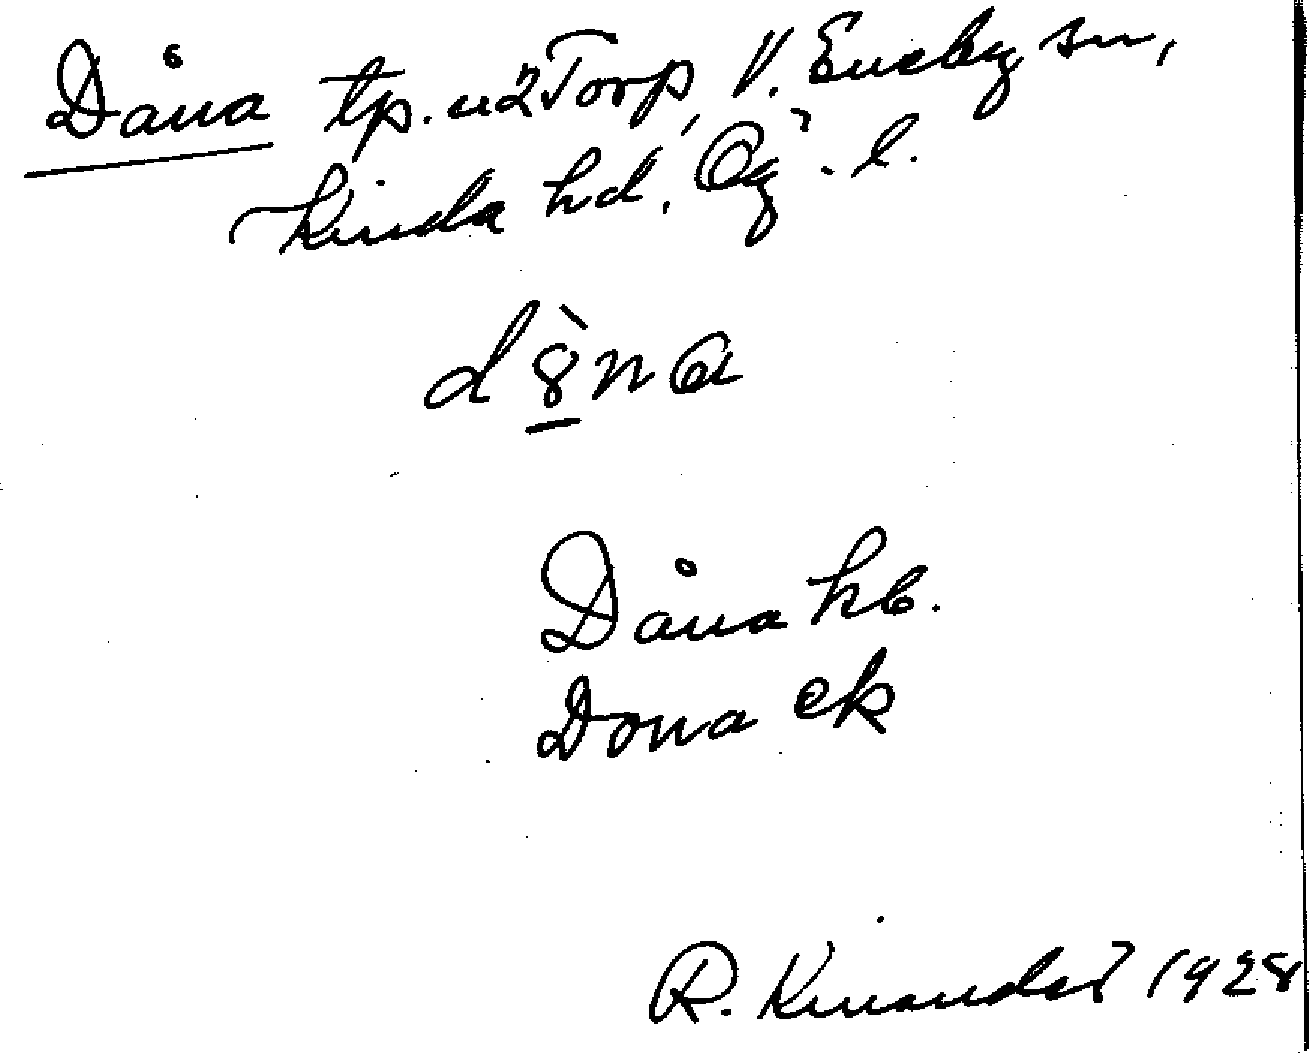 Dåna tp. u2 Torp, V. Eneby sn,
Kinda hd, Ög. l.
d8̠̀na
Dåna hb.
Dona ek
R. Kinander 1928